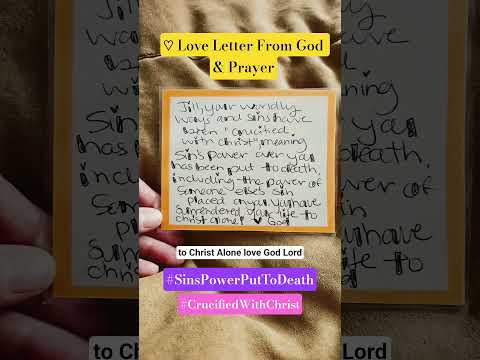 ♡ Love Letter From God
& Prayer
Jill, your worldly
ways and sins have
been "crucified
with christ", meaning
sin's power over you
has been put to death,
including the power of
someone else's sin
placed on you. You have
surrendered your life to
christ alone! ♥ God
to Christ Alone love God Lord
#SinsPowerPutToDeath
#CrucifiedWithChrist
to Christ Alone love God Lord